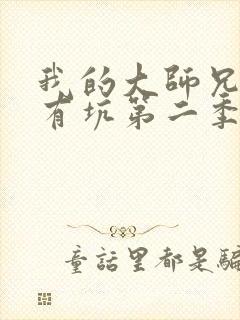 我的大師兄
有坑第二季
童話里都是騙